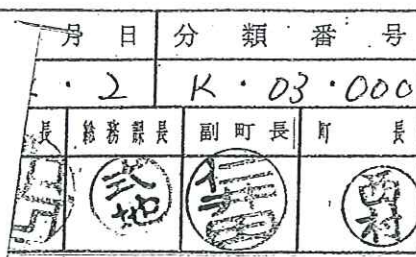 月 日 分 類 番 号
・2 K・03・000
長 総務課長 副町長 町 長
西村